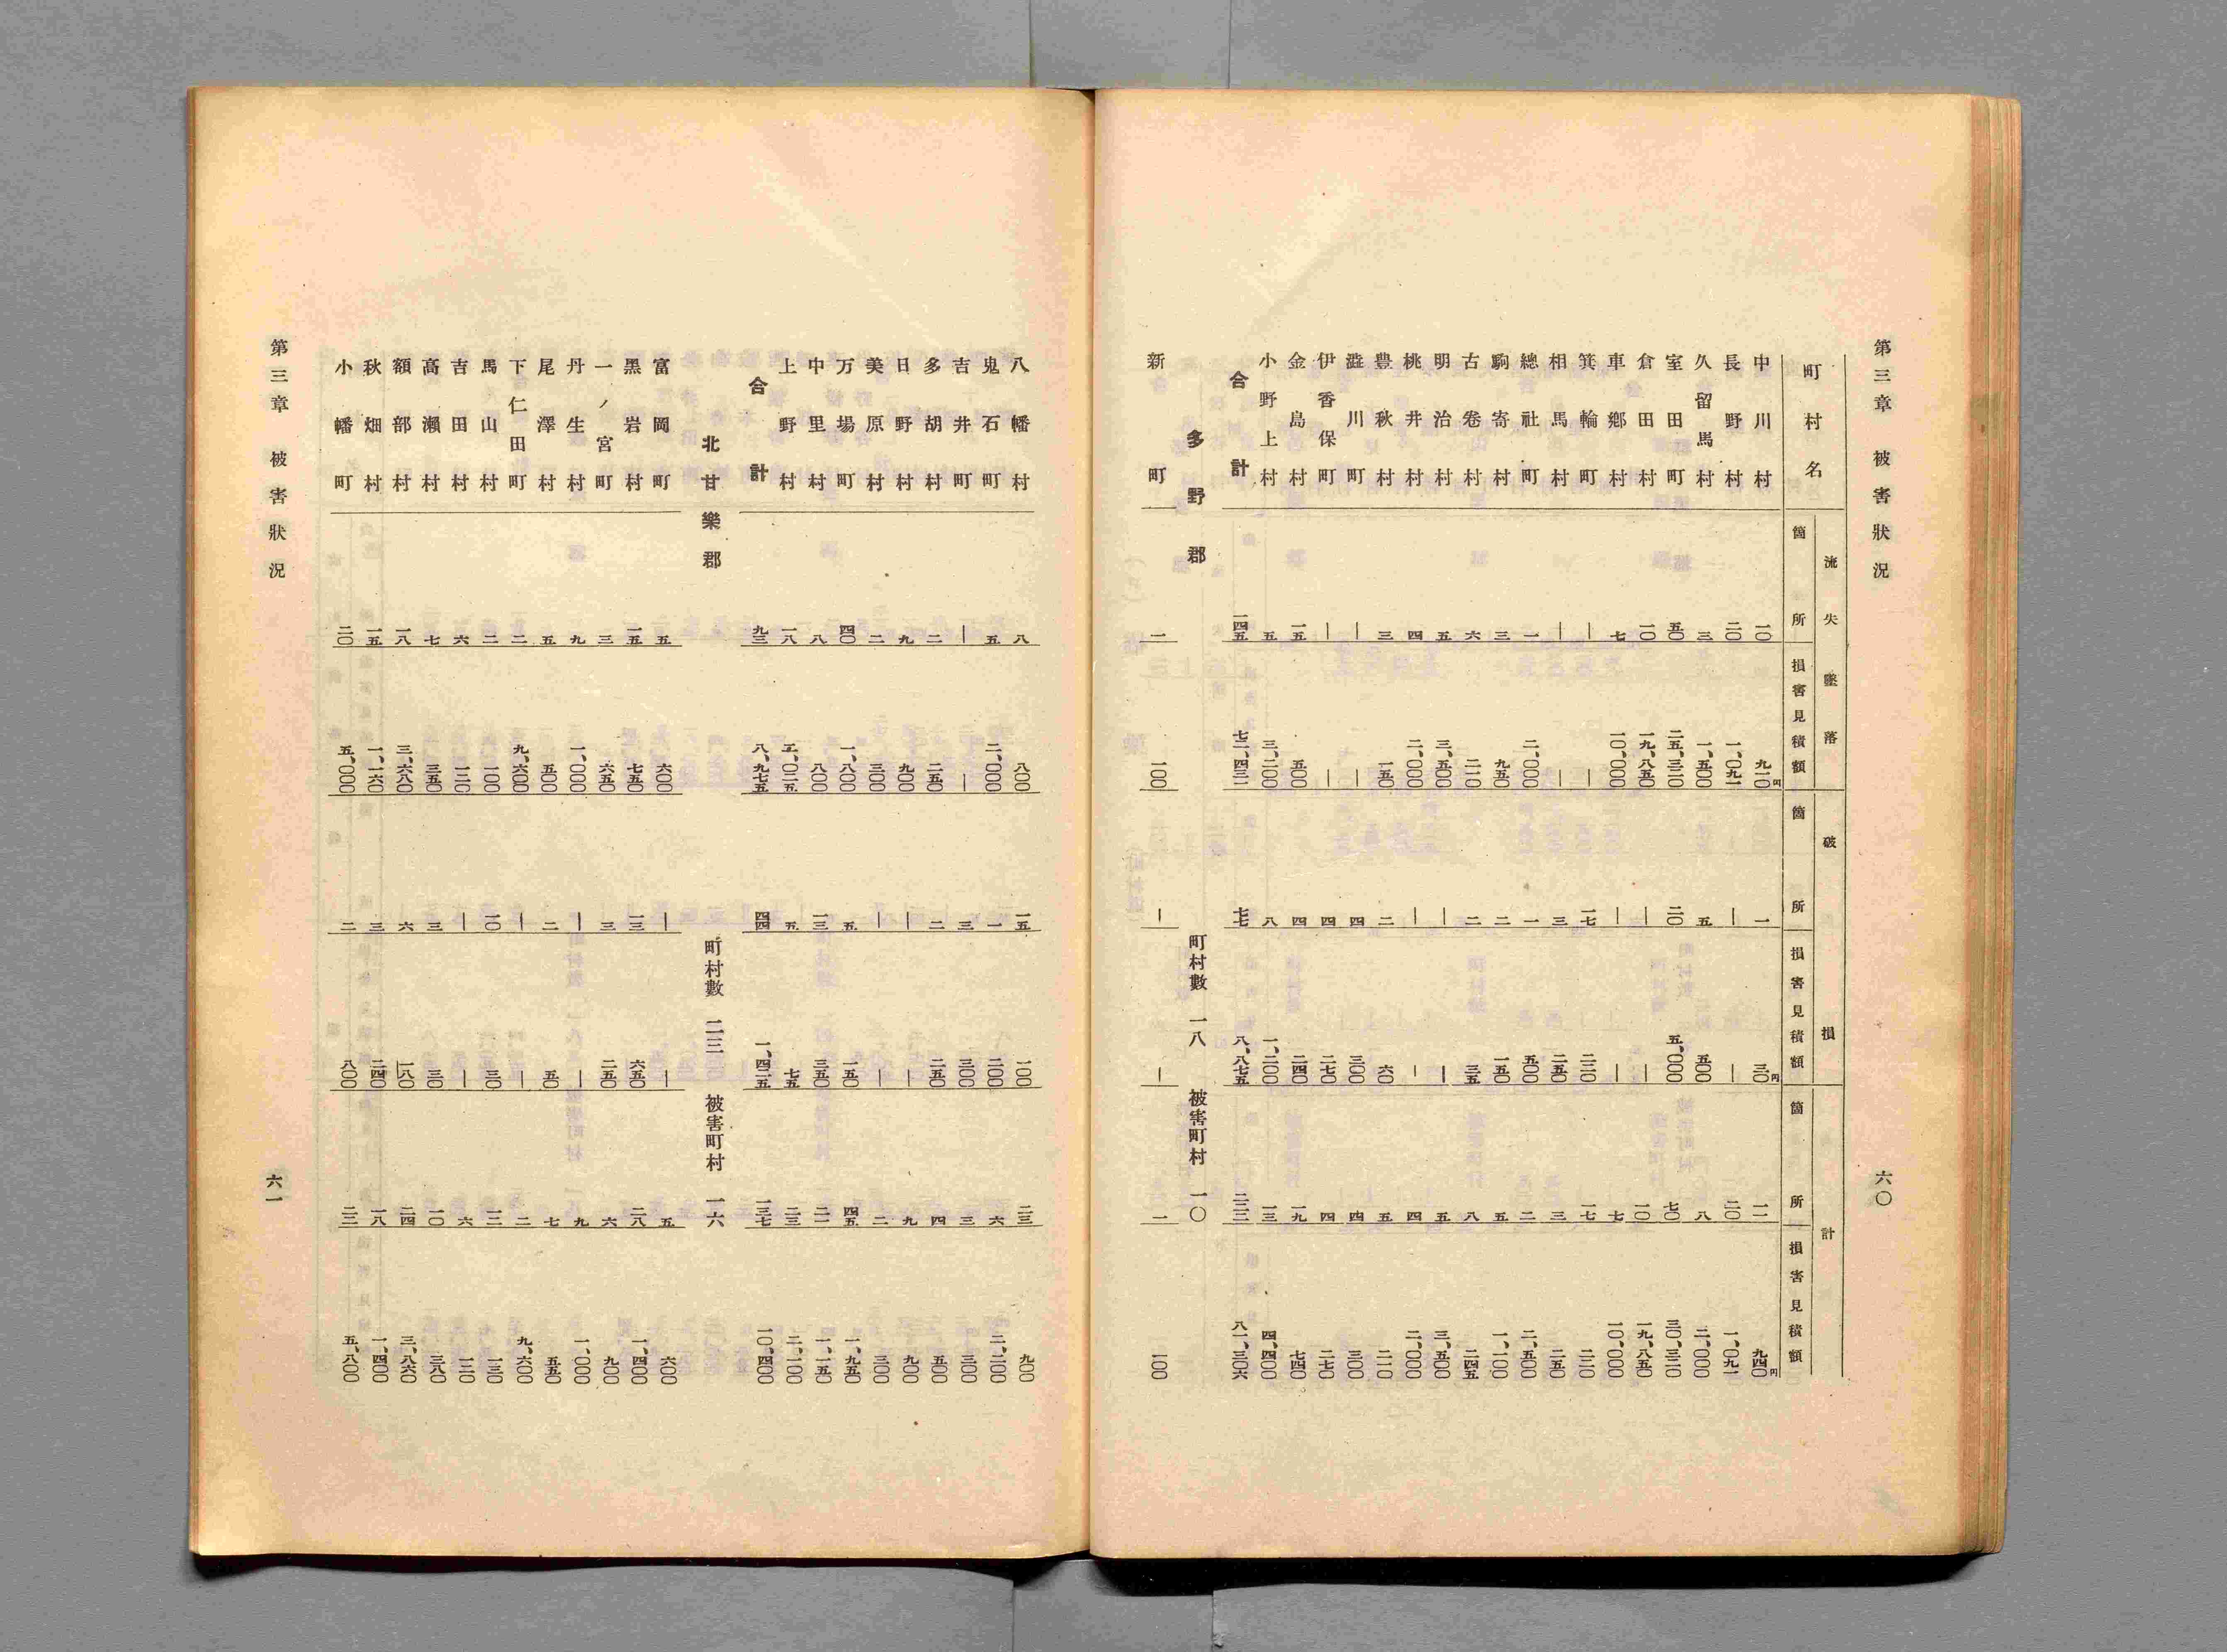 第三章 被害狀況 六〇
町村名 流失墜落 破損 計
箇所 損害見積額 箇所 損害見積額 箇所 損害見積額
中川村 一〇 九一〇円 一 三〇円 一一 九四〇円
長野村 二〇 一、〇九一 ― ― 二〇 一、〇九一
久留馬村 三 一、五〇〇 五 五〇〇 八 二、〇〇〇
室田町 五〇 二五、三二〇 二〇 五、〇〇〇 七〇 三〇、三二〇
倉田村 一〇 一九、八五〇 ― ― 一〇 一九、八五〇
車鄕村 七 一〇、〇〇〇 ― ― 七 一〇、〇〇〇
箕輪町 ― ― 一七 二二〇 一七 二二〇
相馬村 ― ― 三 二五〇 三 二五〇
總社町 一 二、〇〇〇 一 五〇〇 二 二、五〇〇
駒寄村 三 九五〇 二 一五〇 五 一、一〇〇
古卷村 六 二一〇 二 三五 八 二四五
明治村 五 三、五〇〇 ― ― 五 三、五〇〇
桃井村 四 二、〇〇〇 ― ― 四 二、〇〇〇
豊秋村 三 一五〇 二 六〇 五 二一〇
澁川町 ― ― 四 三〇〇 四 三〇〇
伊香保町 ― ― 四 二七〇 四 二七〇
金島村 一五 五〇〇 四 二四〇 一九 七四〇
小野上村 五 三、二〇〇 八 一、二〇〇 一三 四、四〇〇
合計 一四五 七二、四三一 七七 八、八七五 二二二 八一、三〇六
多野郡 町村數 一八 被害町村 一〇
新町 一 一〇〇 ― ― 一 一〇〇
八幡村 八 八〇〇 一五 一〇〇 二三 九〇〇
鬼石町 五 二、〇〇〇 一 二〇〇 六 二、二〇〇
吉井町 ― ― 三 三〇〇 三 三〇〇
多胡村 二 二五〇 二 二五〇 四 五〇〇
日野村 九 九〇〇 ― ― 九 九〇〇
美原村 二 三〇〇 ― ― 二 三〇〇
万場町 四〇 一、八〇〇 五 一五〇 四五 一、九五〇
中里村 八 八〇〇 一三 三五〇 二一 一、一五〇
上野村 一八 二、〇二五 五 七五 二三 二、一〇〇
合計 九三 八、九七五 四四 一、四二五 一三七 一〇、四〇〇
北甘樂郡 町村數 二三 被害町村 一六
富岡町 五 六〇〇 ― ― 五 六〇〇
黑岩村 一五 七五〇 一三 六五〇 二八 一、四〇〇
一ノ宮町 三 六五〇 三 二五〇 六 九〇〇
丹生村 九 一、〇〇〇 ― ― 九 一、〇〇〇
尾澤村 五 五〇〇 二 五〇 七 五五〇
下仁田町 二 九、六〇〇 ― ― 二 九、六〇〇
馬山村 二 一〇〇 一〇 三〇 一二 一三〇
吉田村 六 一二〇 ― ― 六 一二〇
高瀨村 七 三五〇 三 三〇 一〇 三八〇
額部村 一八 三、六八〇 六 一八〇 二四 三、八六〇
秋畑村 一五 一、一六〇 三 二四〇 一八 一、四〇〇
小幡町 二〇 五、〇〇〇 二 八〇〇 二二 五、八〇〇
第三章 被害狀況 六一